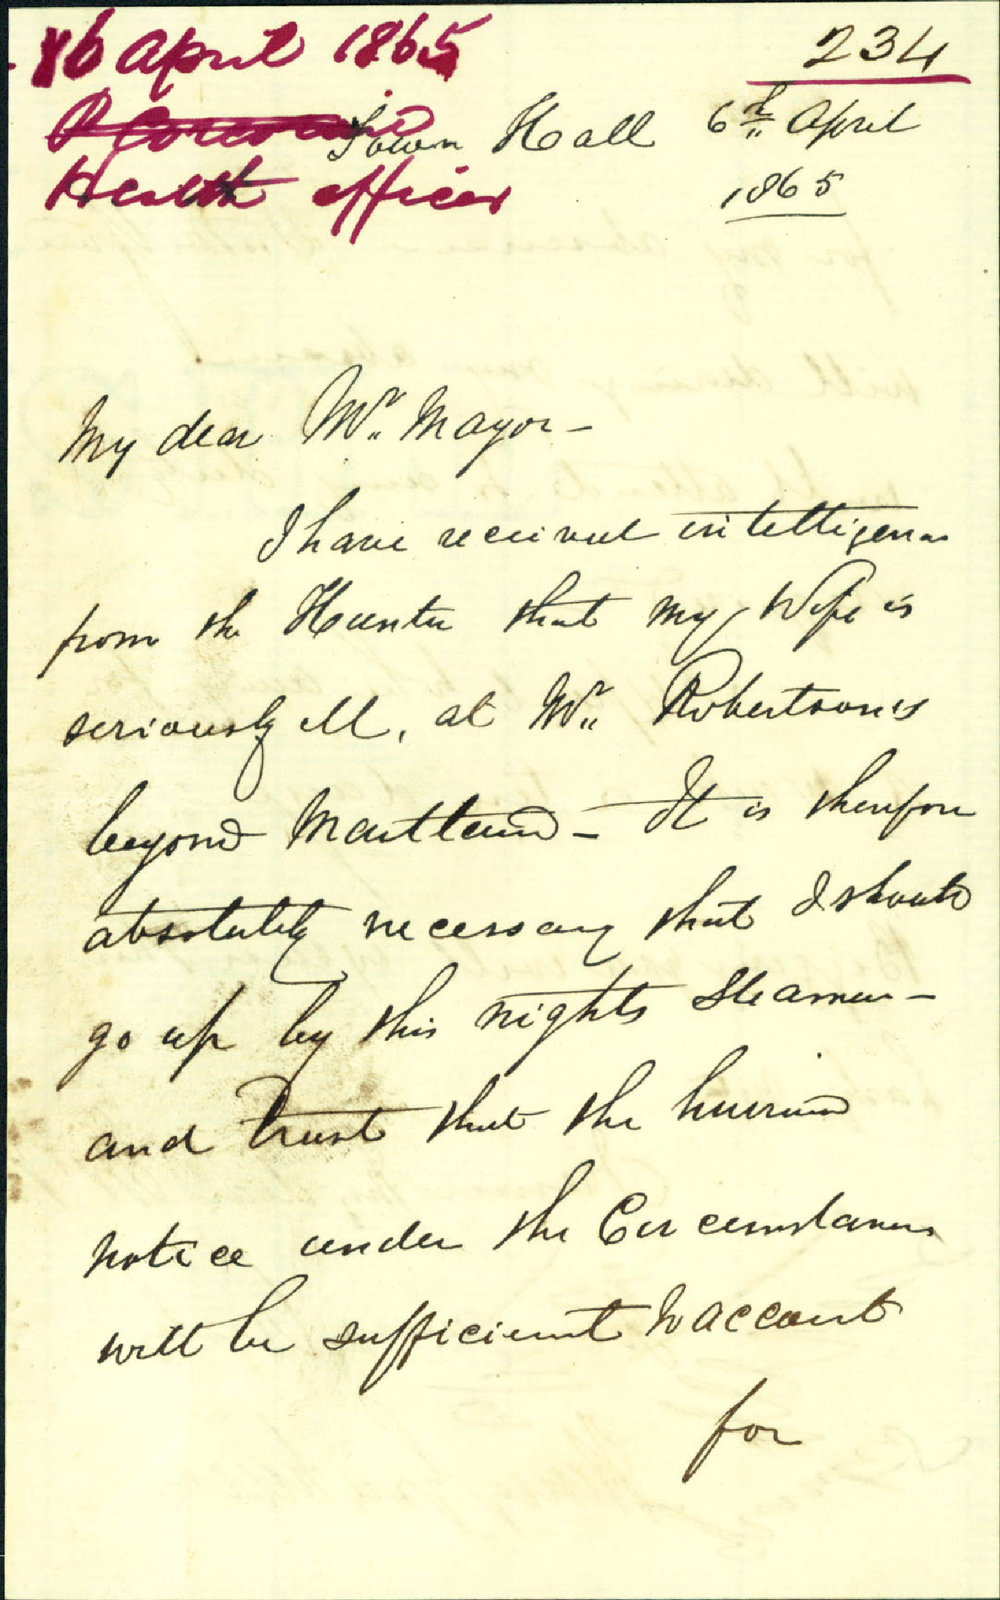 6 April 1865
234
Town Hall 6th April
1865
Health officer
My dear Mr. Mayor -
I have received intelligence
from the Hunter that my Wife is
seriously ill, at Mr. Robertson's
beyond Maitland - It is therefore
absolutely necessary that I should
go up by this nights steamer -
and trust that the hurried
notice under the Circumstances
will be sufficient to account
for